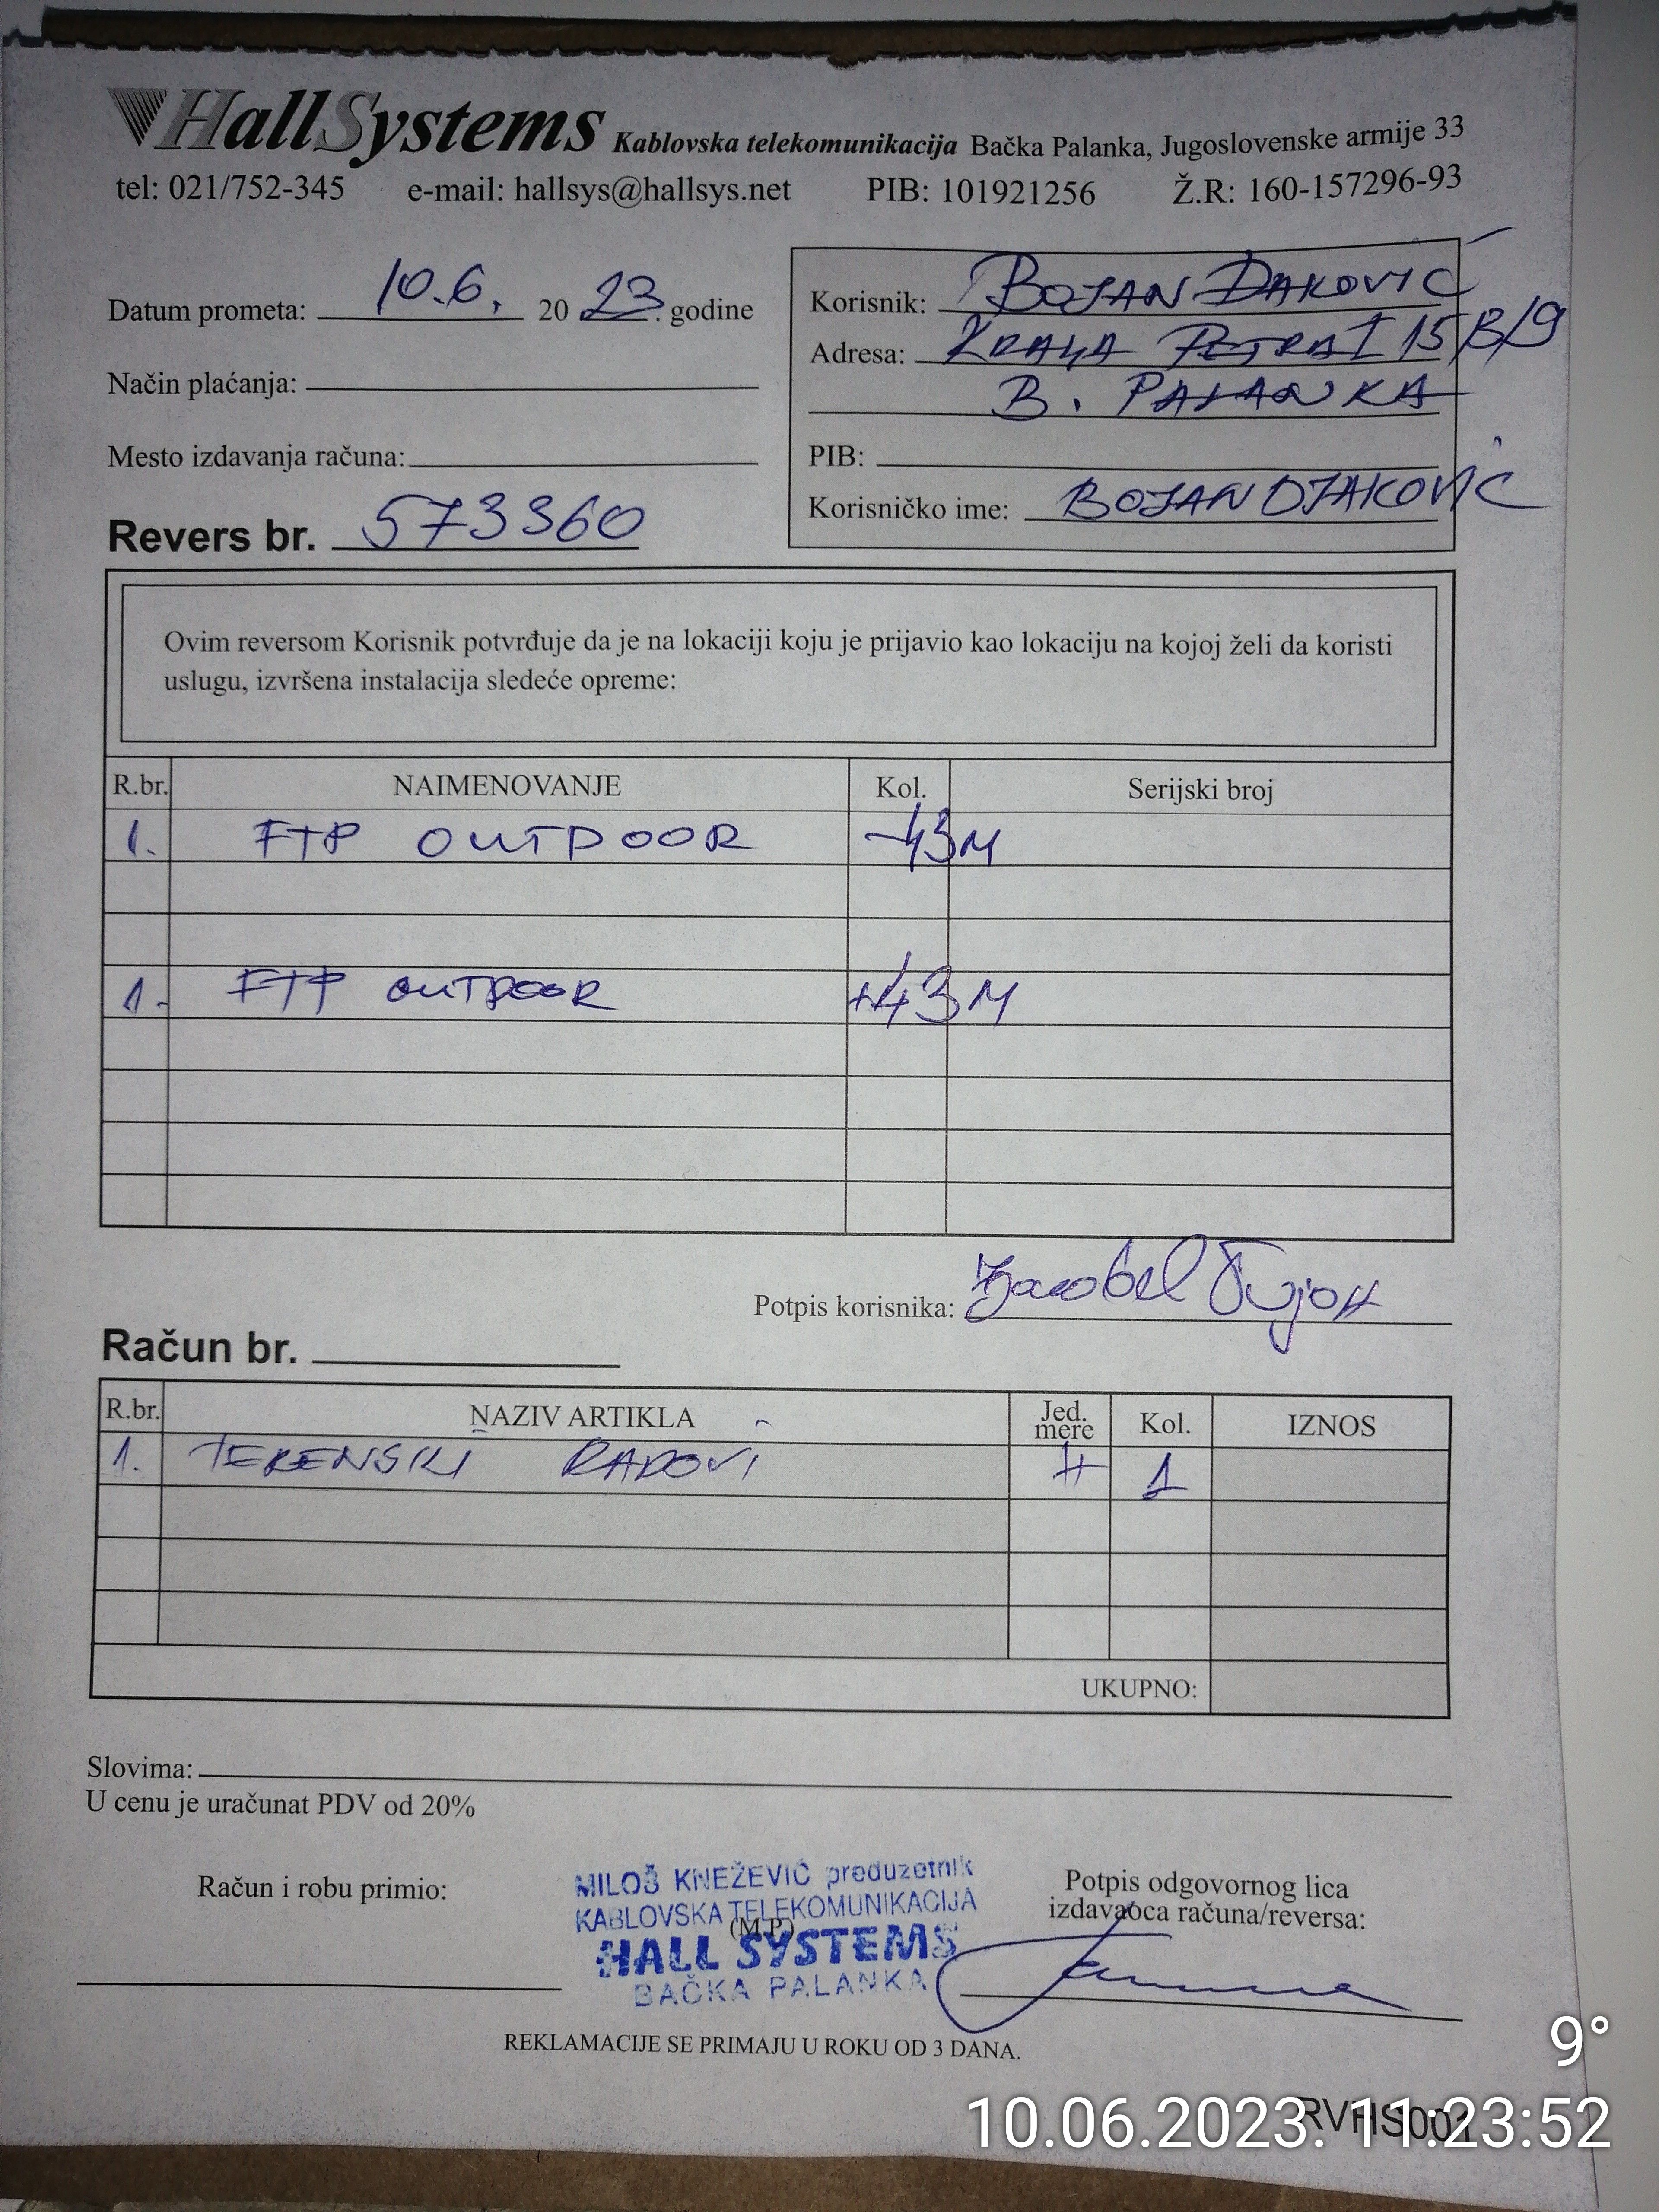 HallSystems Kablovska telekomunikacija Bačka Palanka, Jugoslovenske armije 33
tel: 021/752-345 e-mail: hallsys@hallsys.net PIB: 101921256 Ž.R: 160-157296-93
Datum prometa: 10.6. 20 23. godine
Način plaćanja:
Mesto izdavanja računa:
Revers br. 573360
Korisnik: BOJAN ĐAKOVIĆ
Adresa: KRALJA PETRA I 15B/9
B. PALANKA
PIB:
Korisničko ime: BOJANDJAKOVIĆ
Ovim reversom Korisnik potvrđuje da je na lokaciji koju je prijavio kao lokaciju na kojoj želi da koristi
uslugu, izvršena instalacija sledeće opreme:
R.br. NAIMENOVANJE Kol. Serijski broj
1. FTP OUTDOOR -43M
1. FTP OUTDOOR +43M
Potpis korisnika:
Račun br.
R.br. NAZIV ARTIKLA Jed. mere Kol. IZNOS
1. TERENSKI RADOVI H 1
UKUPNO:
Slovima:
U cenu je uračunat PDV od 20%
Račun i robu primio:
MILOŠ KNEŽEVIĆ preduzetnik
KABLOVSKA TELEKOMUNIKACIJA
(M.P.)
HALL SYSTEMS
BAČKA PALANKA
Potpis odgovornog lica
izdavaoca računa/reversa:
REKLAMACIJE SE PRIMAJU U ROKU OD 3 DANA.
RVHS001
9°
10.06.2023. 11:23:52